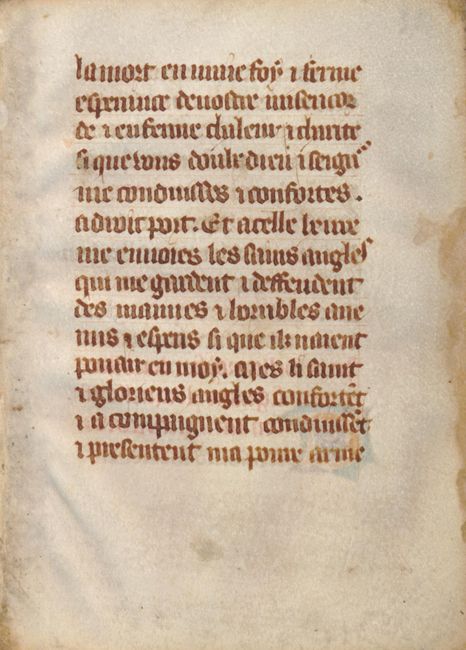 la mort en uiue foy ⁊ ferme
esperance de uostre misericor
de ⁊ en ferme chaleur ⁊ charite
si que vous doulz dieu ⁊ seign
me conduisses ⁊ confortes.
a droit port. Et a celle heure
me enuoies les sains angles
qui me gardent ⁊ deffendent
des mauues ⁊ horribles ane
mis ⁊ espris si que il naient
pouair en moy. Mes li saint
⁊ glorieus angles confortẽt
⁊ acompaignent conduissẽt
⁊ presentent ma poure arme